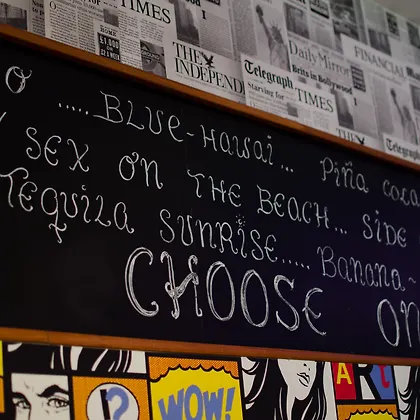 TIMES
THE INDEPEND
Telegraph
Starving for
TIMES
Daily Mirror
Brits in Bollywood
FINANCIAL
THE
Telegraph
HOME
O ..... BLUE-HAWAI... PIÑA COLA
SEX ON THE BEACH... SIDE
TEQUILA SUNRISE..... BANANA-
CHOOSE ON
?
WOW!
ART